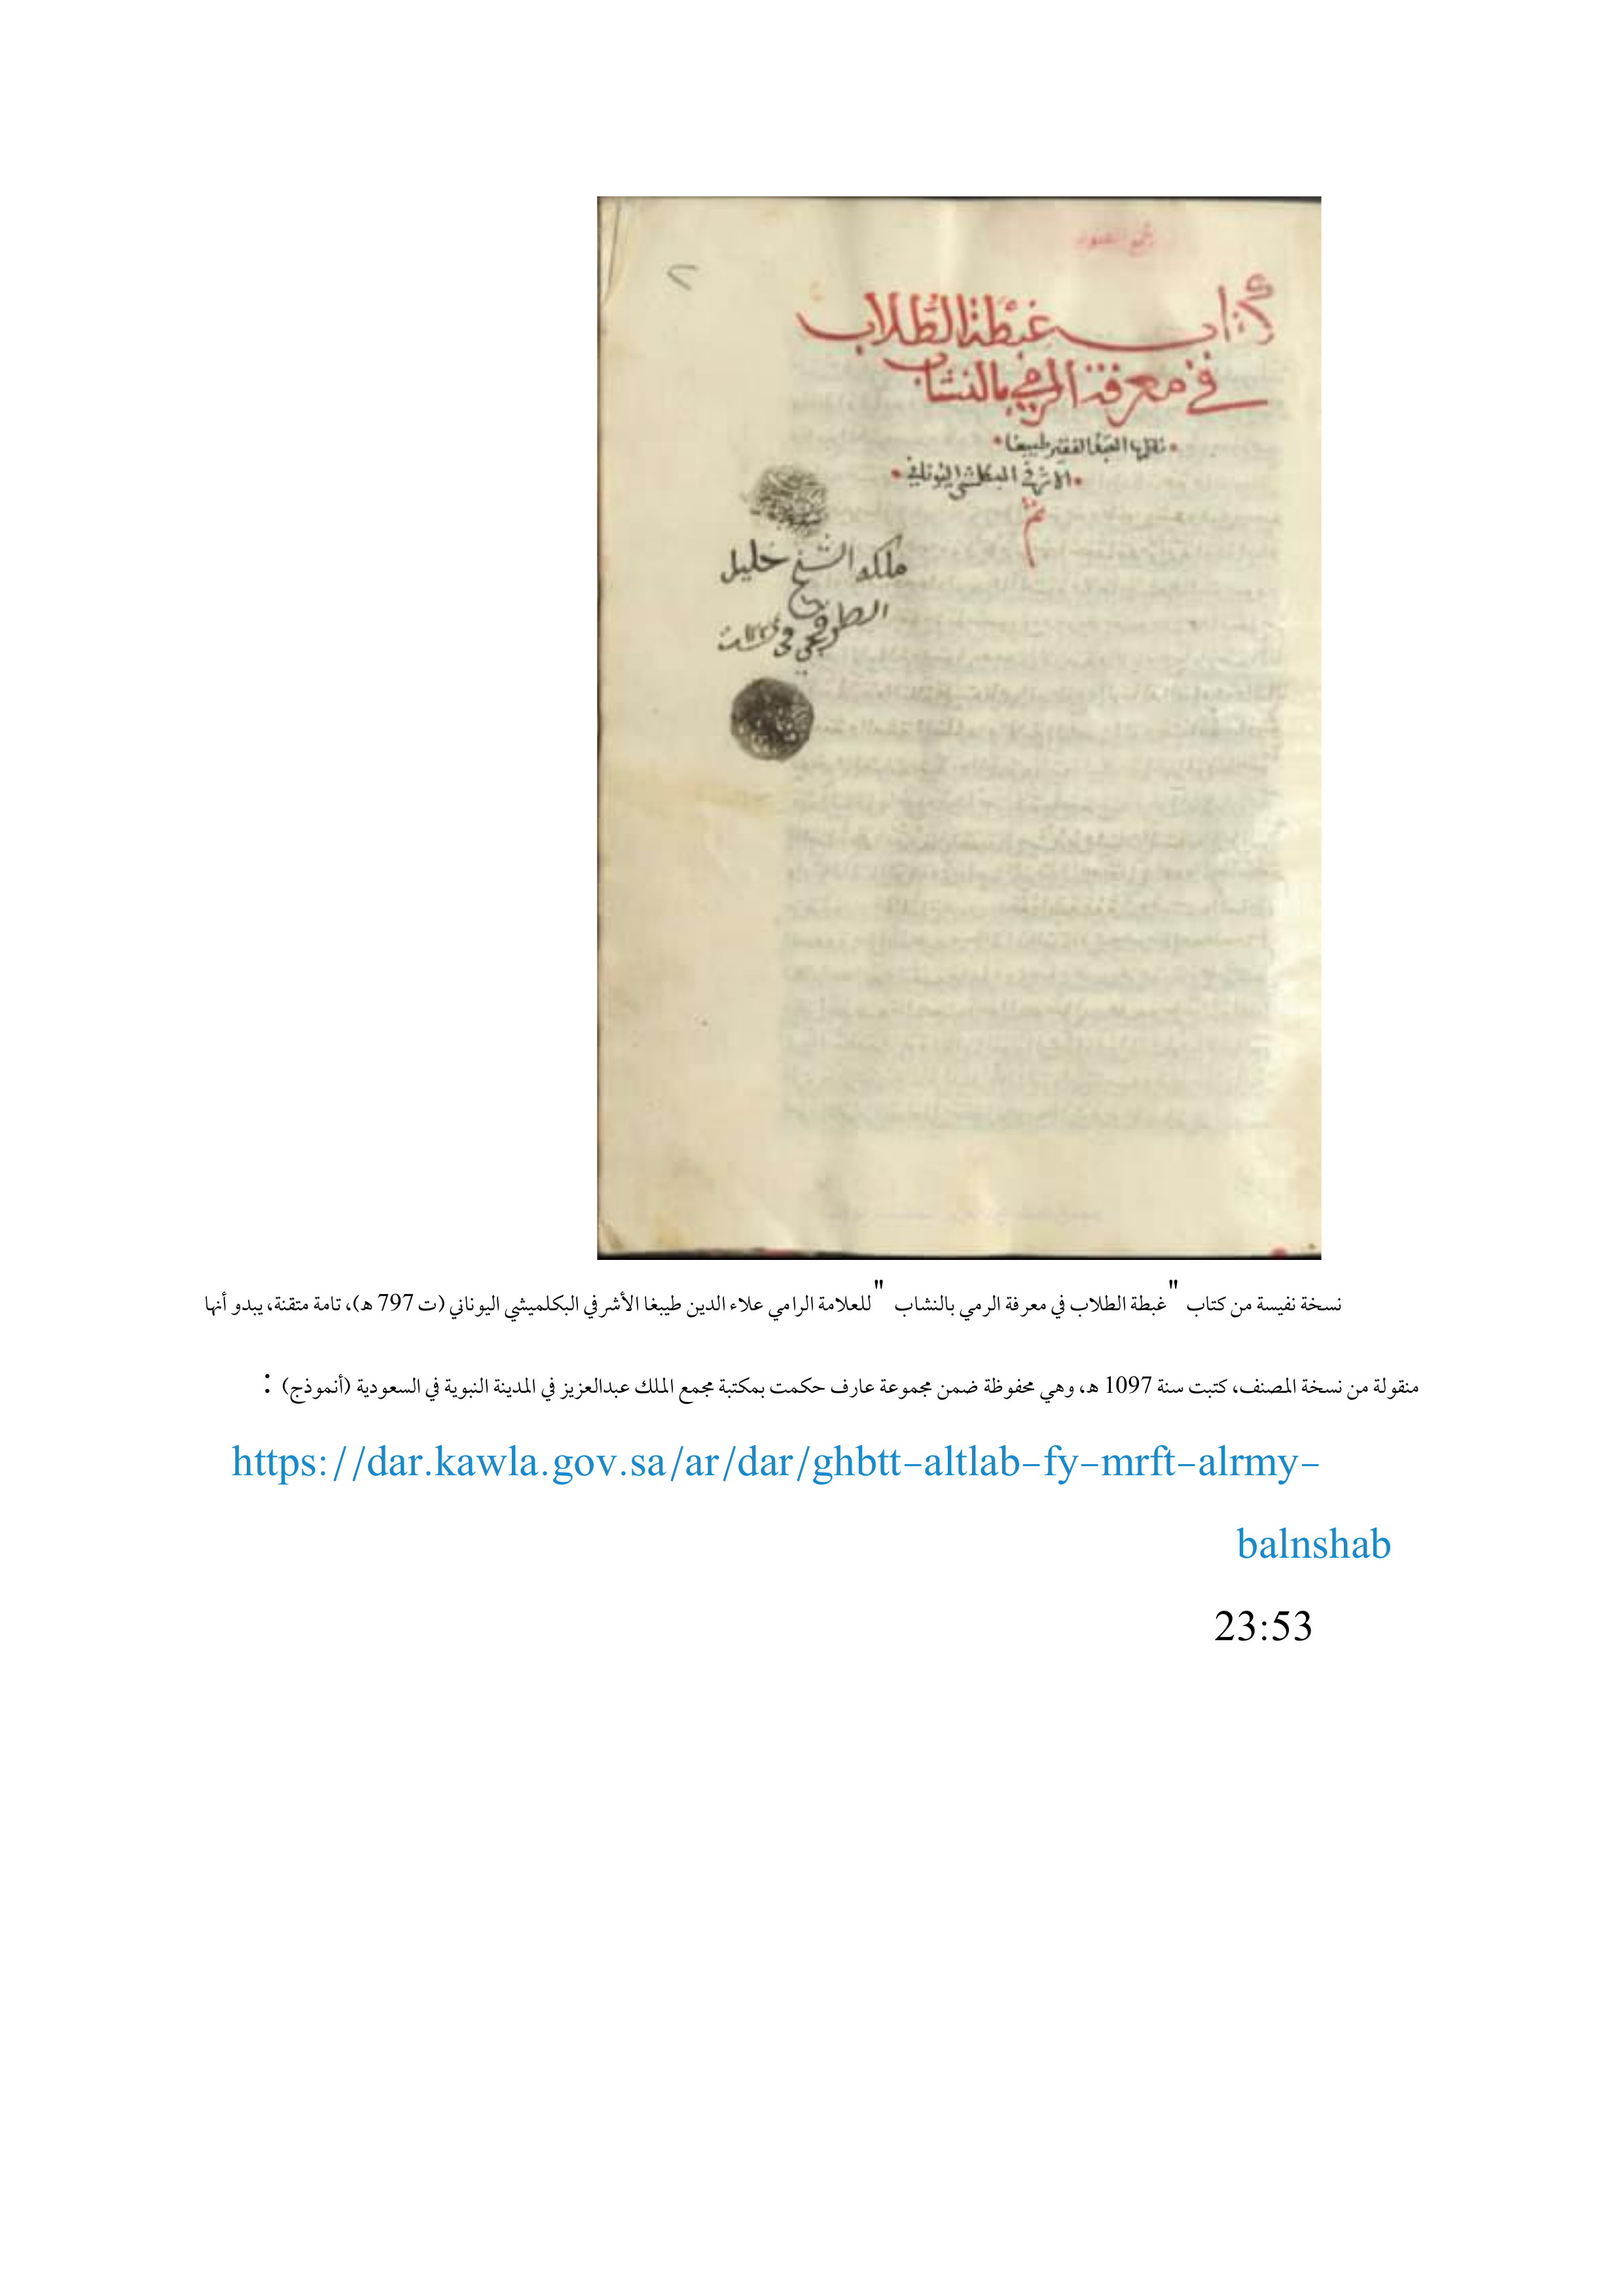 كتاب غبطة الطلاب
في معرفة الرمي بالنشاب
العبد الفقير طيبغا
الاشرفي البكلمشي اليوناني
تم
ملكه الشيخ خليل
في
نسخة نفيسة من كتاب "غبطة الطلاب في معرفة الرمي بالنشاب" للعلامة الرامي علاء الدين طيبغا الأشرفي البكلميشي اليوناني (ت 797 هـ)، تامة متقنة، يبدو أنها
منقولة من نسخة المصنف، كتبت سنة 1097 هـ، وهي محفوظة ضمن مجموعة عارف حكمت بمكتبة مجمع الملك عبدالعزيز في المدينة النبوية في السعودية (أنموذج) :
https://dar.kawla.gov.sa/ar/dar/ghbtt-altlab-fy-mrft-alrmy-
balnshab
23:53